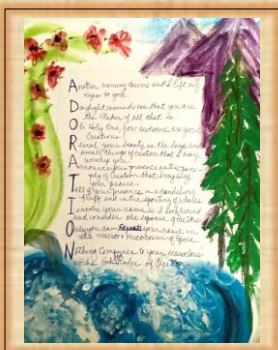 Another morning dawns and I lift my
eyes to you.
Daylight reminds me that you are
the Maker of all that is.
Oh Holy One, how awesome are your
Creations!
Reveal your beauty in the large and
small things of creation that I may
worship you.
Announce your presence in the
of Creation that may sing
your praise.
Tell of your presence in a dandelion
fluff and in the spouting of whales.
I invoke your name as I look around
and consider the signature of
Only you can your name in
the macro + microcosm of space.
Nothing Compares to your marvelous
works,